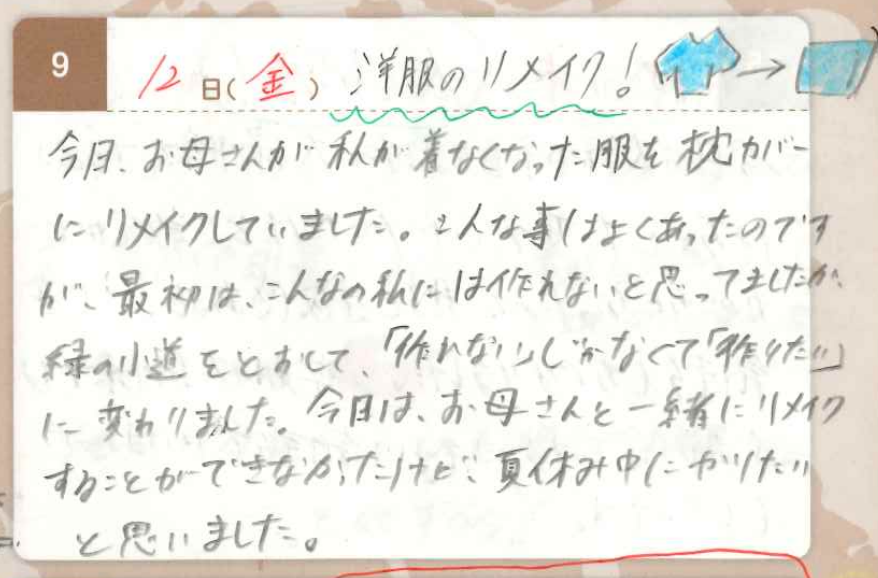 9
12日(金) 洋服のリメイク! →
今日、お母さんが私が着なくなった服を枕カバー
にリメイクしていました。こんな事はよくあったのです
が、最初は、こんなの私には作れないと思ってましたが、
緑の小道をとおして、「作れない」じゃなくて「作りたい」
に変わりました。今日は、お母さんと一緒にリメイク
することができなかったけど、夏休み中にやりたい
と思いました。